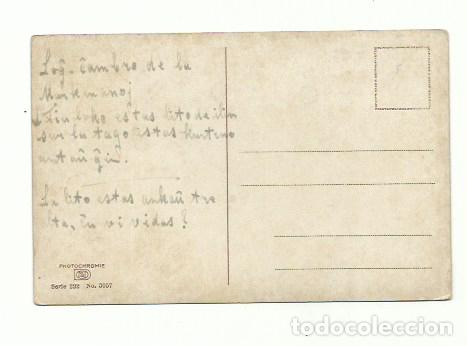 Loĝ-ĉambro de la
Markmanoj
Tiu loko estas lito de ilin
sur la tago estas kurteno
antaŭ ĝin.
La lito estas ankaŭ tre
alta, ĉu vi vidas?
PHOTOCHROMIE
Serie 292 No. 3057
todocoleccion.net